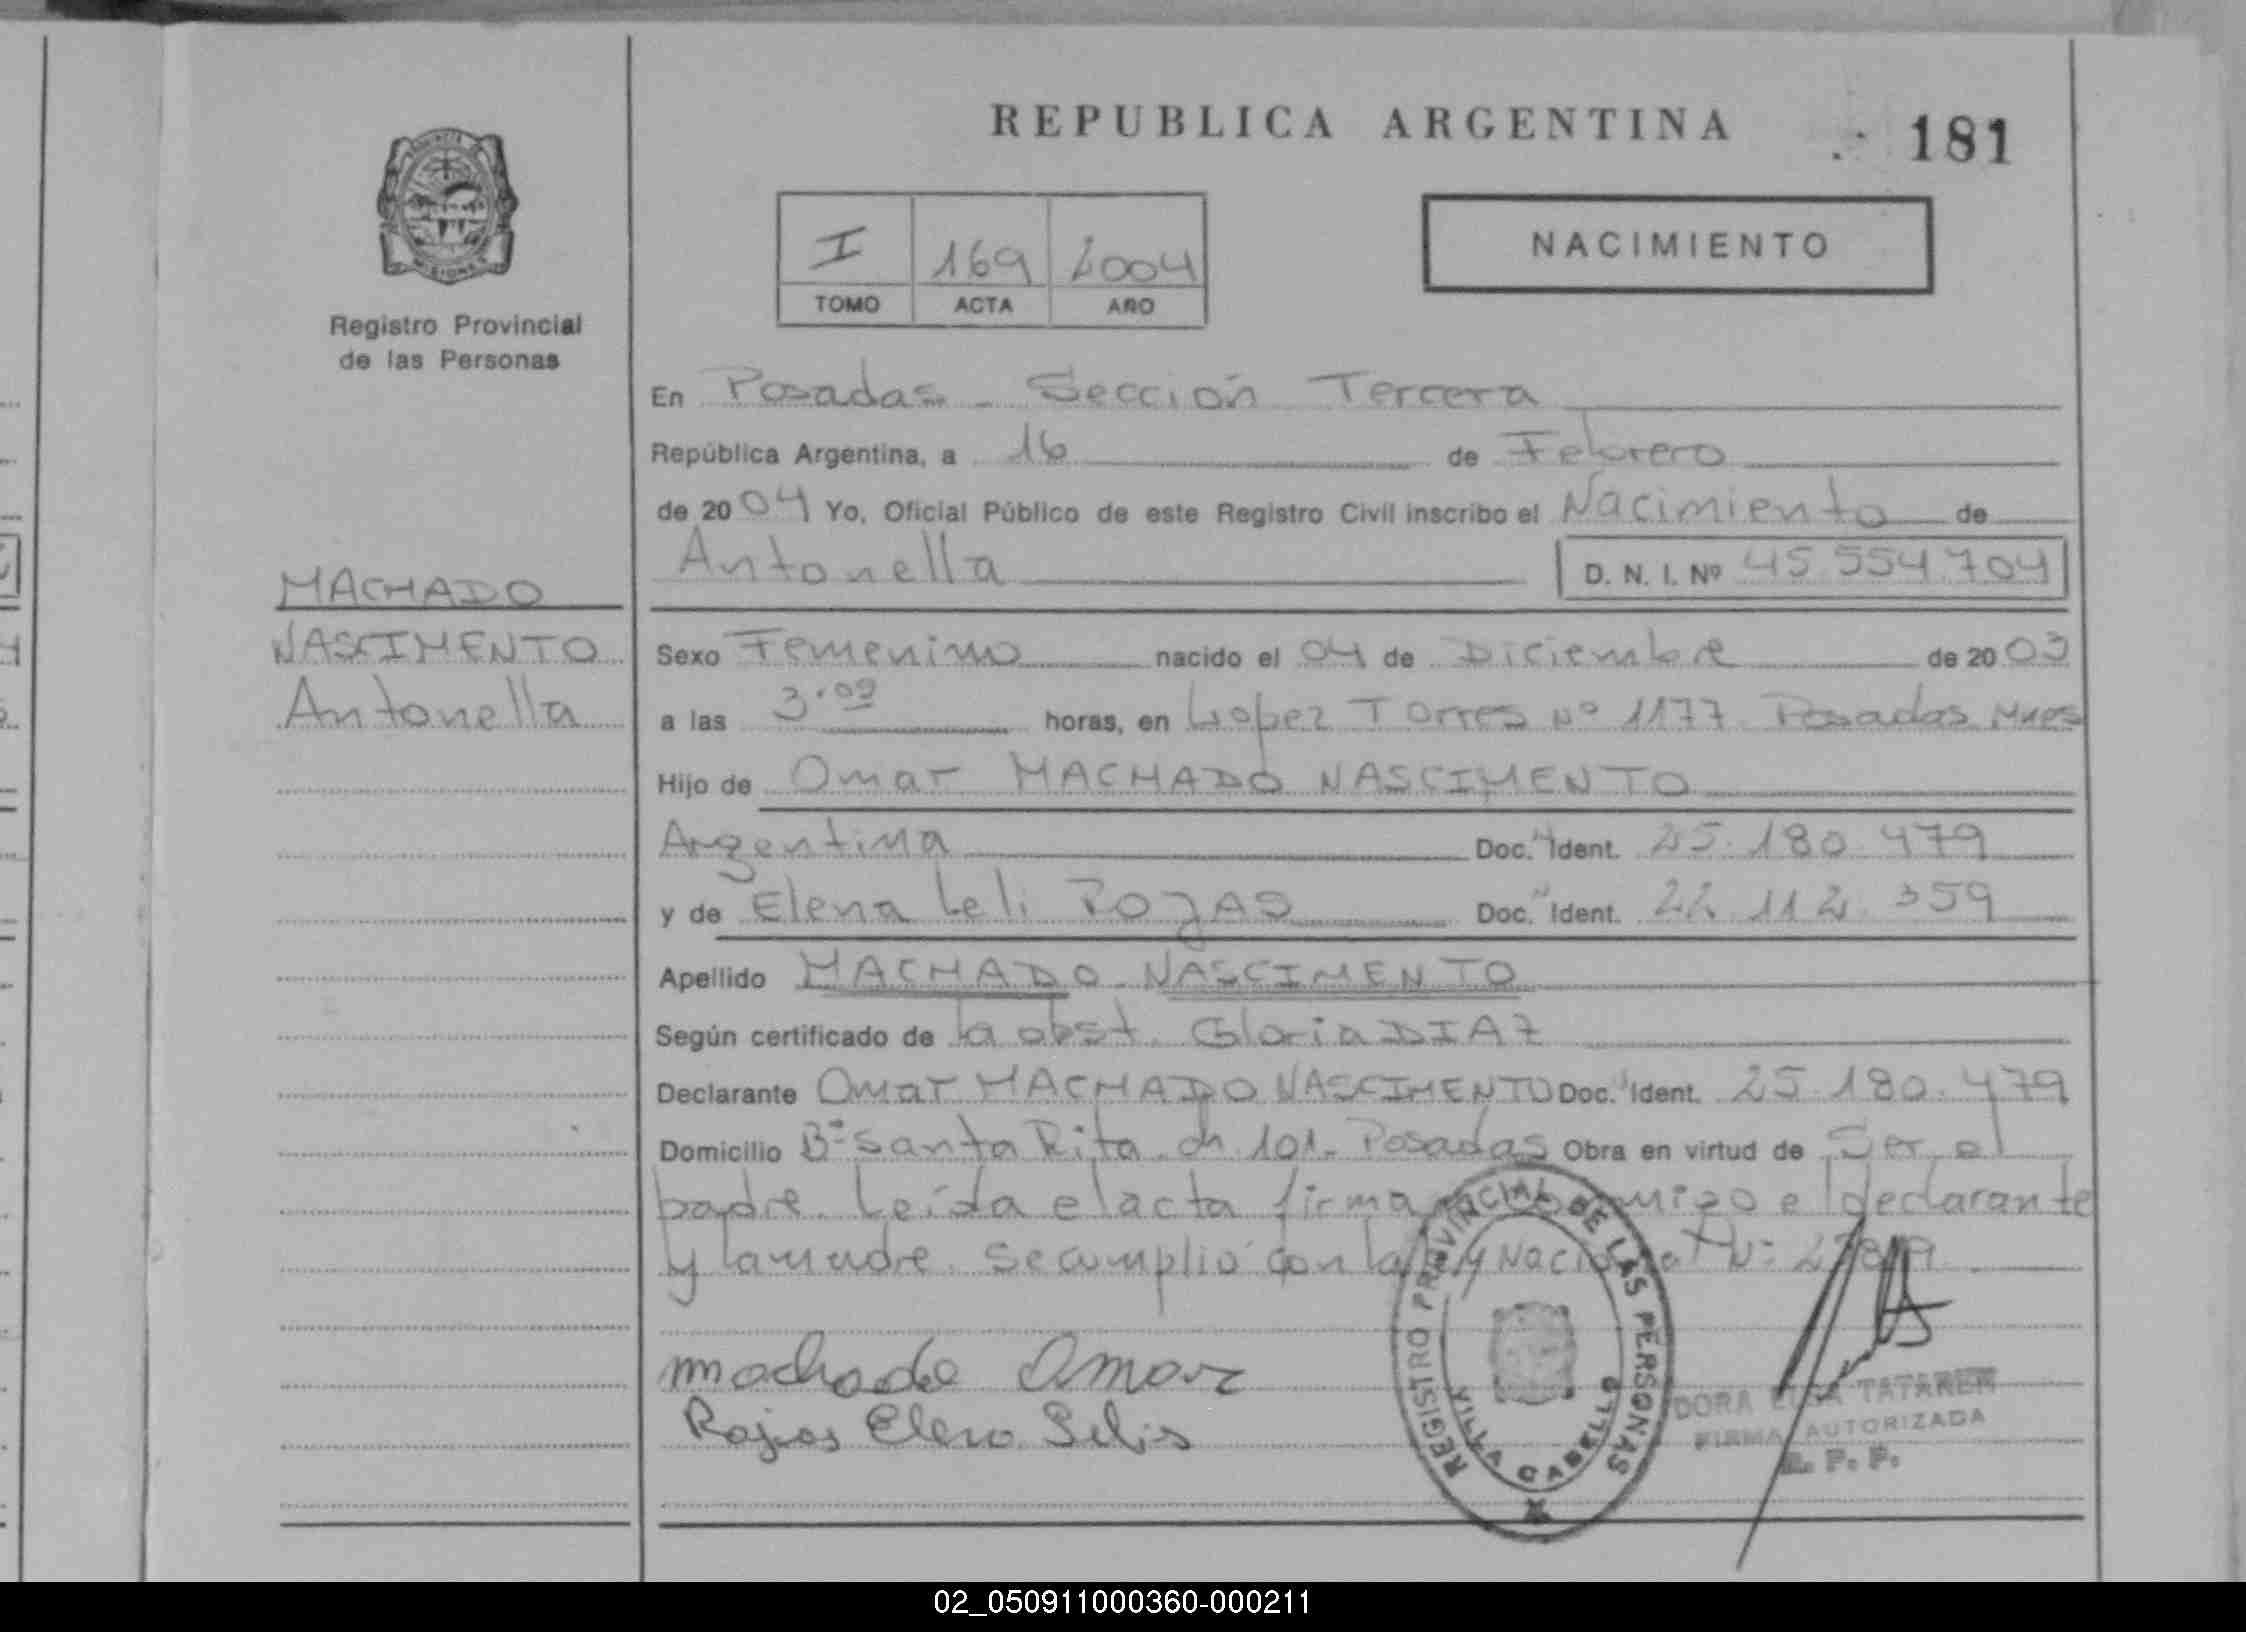 REPUBLICA ARGENTINA
181
PROVINCIA
MISIONES
Registro Provincial
de las Personas
I 169 2004
TOMO ACTA AÑO
NACIMIENTO
En Posadas - Sección Tercera
República Argentina, a 16 de Febrero
de 2004 Yo, Oficial Público de este Registro Civil inscribo el Nacimiento de
Antonella D. N. I. Nº 45.554.704
MACHADO
NASCIMENTO
Antonella
Sexo Femenino nacido el 04 de Diciembre de 2003
a las 3.09 horas, en Lopez Torres Nº 1177 Posadas Mnes
Hijo de Omar MACHADO NASCIMENTO
Argentina Doc. Ident. 25.180.479
y de Elena Leli ROJAS Doc. Ident. 22.112.359
Apellido MACHADO NASCIMENTO
Según certificado de la obst. Gloria DIAZ
Declarante Omar MACHADO NASCIMENTO Doc. Ident. 25.180.479
Domicilio Bº Santa Rita ch 101 - Posadas Obra en virtud de Ser el
padre. Leída el acta firma conmigo el declarante
y la madre. Se cumplió con la Ley Nacional Nº
machado Omar
Rojas Elena
REGISTRO PROVINCIAL DE LAS PERSONAS
VILLA CABELLO
DORA TATAREN
FIRMA AUTORIZADA
R. P. P.
02_050911000360-000211